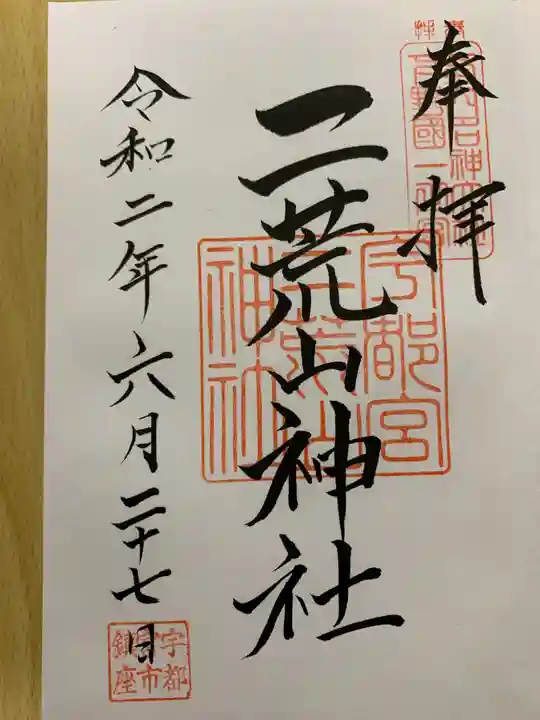 奉拝
二荒山神社
宇都宮
二荒山
神社
令和二年六月二十七日
宇都
宮市
鎮座